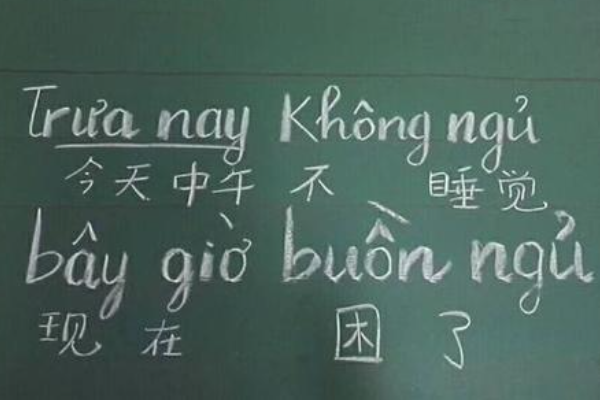 Trưa nay Không ngủ
今天中午 不 睡觉
bây giờ buồn ngủ
现在 困了